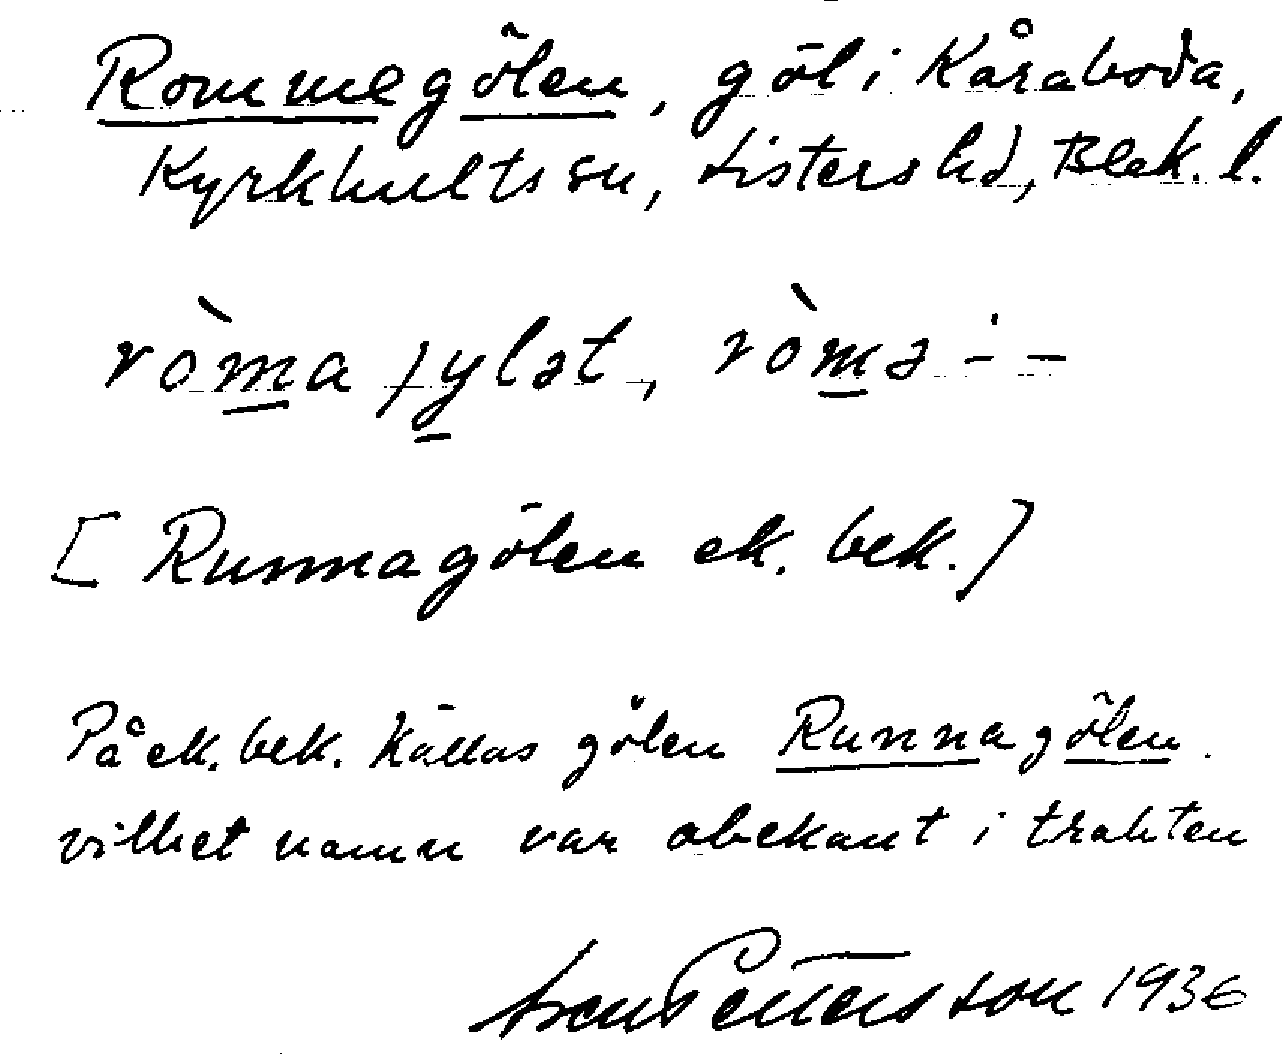 Rommegölen, göl i Kåraboda,
Kyrkhults sn, Listers hd, Blek. l.
ròma jylət, ròmə -́ -
[Runnagölen ek. bek.]
På ek. bek. kallas gölen Runnagölen.
vilket namn var obekant i trakten
Pettersson 1936